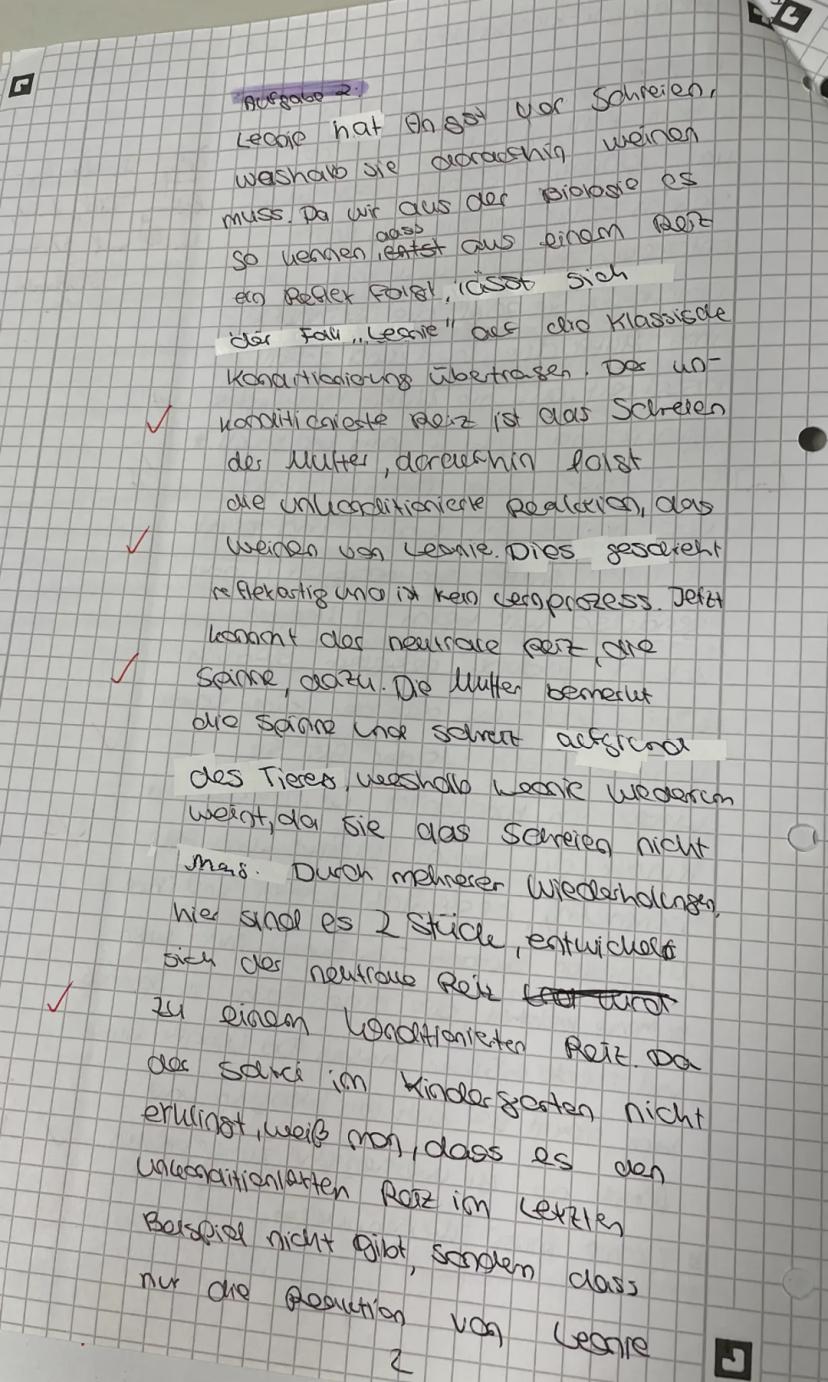 Aufgabe 2:
Leonie hat Angst vor Schreien,
weshalb sie daraufhin weinen
muss. Da wir aus der Biologie es
so kennen, dass aus einem Reiz
ein Reflex folgt, lässt sich
der Fall „Leonie" auf die Klassische
Konditionierung übertragen. Der un-
konditionierte Reiz ist das Schreien
der Mutter, daraufhin folgt
die unkonditionierte Reaktion, das
Weinen von Leonie. Dies geschieht
reflexartig und ist kein Lernprozess. Jetzt
kommt der neutrale Reiz, die
Spinne, dazu. Die Mutter bemerkt
die Spinne und schreit aufgrund
des Tieres, weshalb Leonie wiederum
weint, da sie das Schreien nicht
mag. Durch mehrerer Wiederholungen,
hier sind es 2 Stück, entwickelt
sich der neutrale Reiz
zu einem konditionierten Reiz. Da
der Schrei im Kindergarten nicht
erklingt, weiß man, dass es den
unkonditionierten Reiz im letzten
Beispiel nicht gibt, sondern dass
nur die Reaktion von Leonie
2